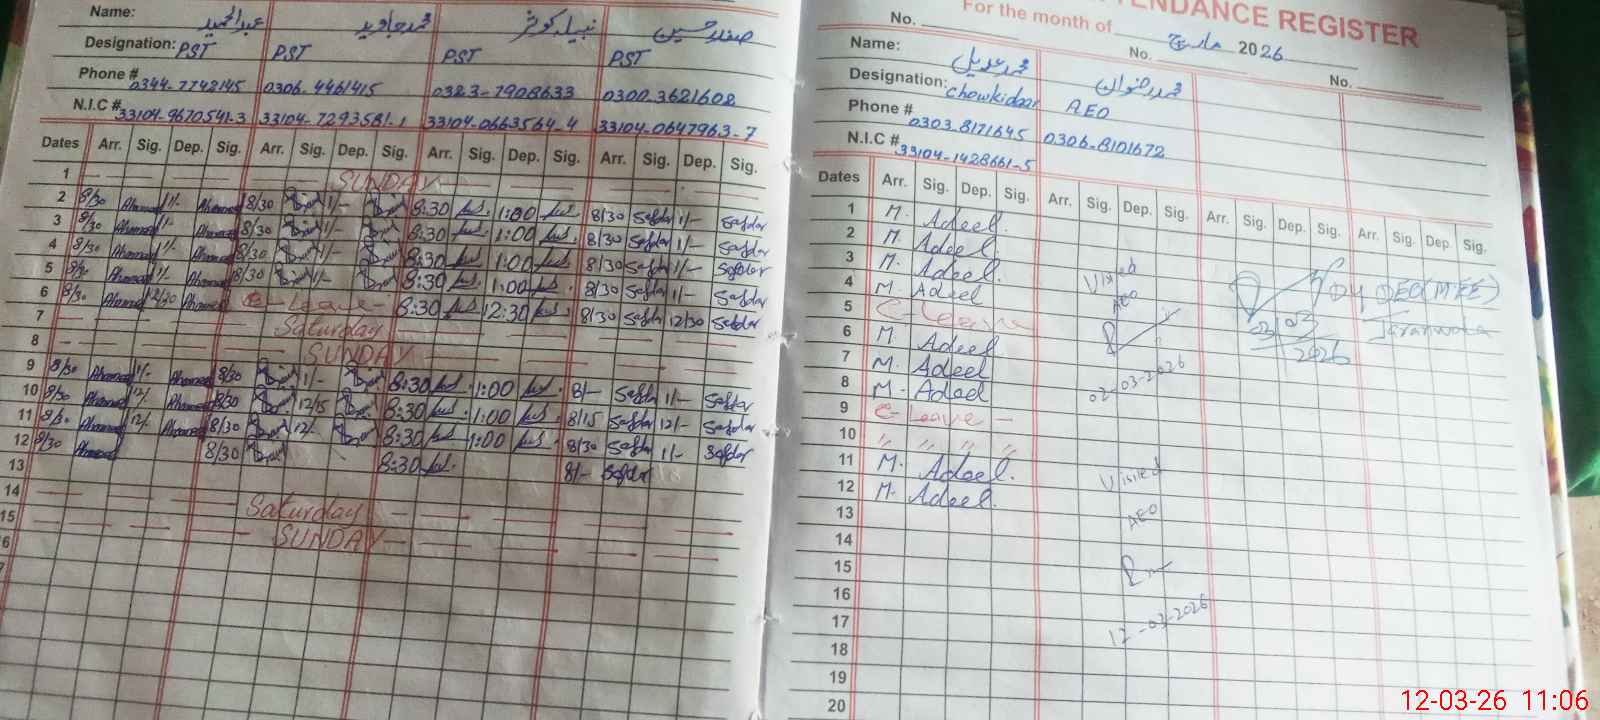 Name: عبدالحمید محمد جاوید نبیلہ کوثر صفدر حسین
Designation: PST PST PST PST
Phone # 0344-7742145 0306-4461415 0323-7908633 0300-3621602
N.I.C # 33104-9670541-3 33104-7293581-1 33104-0663564-4 33104-0647963-7
Dates Arr. Sig. Dep. Sig. Arr. Sig. Dep. Sig. Arr. Sig. Dep. Sig. Arr. Sig. Dep. Sig.
1 SUNDAY
2 8/30 Ahmad 1/- Ahmad 8/30 1/- 8:30 1:00 8/30 Safdar 1/- Safdar
3 8/30 Ahmad 1/- Ahmad 8/30 1/- 8:30 1:00 8/30 Safdar 1/- Safdar
4 8/30 Ahmad 1/- Ahmad 8/30 1/- 8:30 1:00 8/30 Safdar 1/- Safdar
5 8/30 Ahmad 1/- Ahmad 8/30 1/- 8:30 1:00 8/30 Safdar 1/- Safdar
6 8/30 Ahmad 12/30 Ahmad C-Leave- 8:30 12:30 8/30 Safdar 12/30 Safdar
7 Saturday
8 SUNDAY
9 8/30 Ahmad 1/- Ahmad 8/30 1/- 8:30 1:00 8/- Safdar 1/- Safdar
10 8/30 Ahmad 12/- Ahmad 8/30 12/15 8:30 1:00 8/15 Safdar 12/- Safdar
11 8/30 Ahmad 12/- Ahmad 8/30 12/- 8:30 1:00 8/30 Safdar 1/- Safdar
12 8/30 Ahmad 8/30 8:30 8/- Safdar
13
14 Saturday
15 SUNDAY
TENDANCE REGISTER
For the month of مارچ 2026
No. No. No.
Name: محمد عدیل محمد رضوان
Designation: Chowkidar AEO
Phone # 0303-8171645 0306-8101672
N.I.C # 33104-1428661-5
Dates Arr. Sig. Dep. Sig. Arr. Sig. Dep. Sig. Arr. Sig. Dep. Sig. Arr. Sig. Dep. Sig.
1 M. Adeel.
2 M. Adeel
3 M. Adeel.
4 M. Adeel
5 C-Leave
6 M. Adeel
7 M. Adeel
8 M. Adeel
9 C-Leave -
10 " " " "
11 M. Adeel.
12 M. Adeel.
13
14
15
16
17
18
19
20
Visited
AEO
02-03-2026
Visited
AEO
12-03-2026
DY DEO(M-EE)
Jaranwala
03/03
2026
12-03-26 11:06